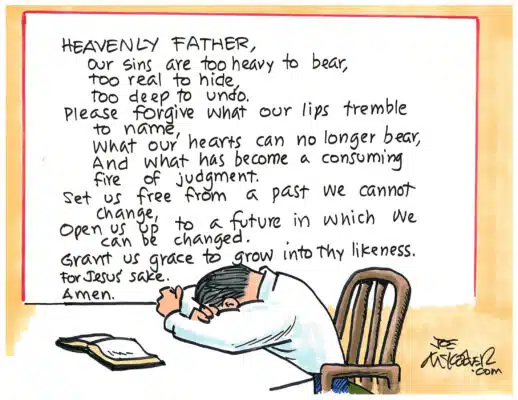 HEAVENLY FATHER,
Our sins are too heavy to bear,
too real to hide,
too deep to undo.
Please forgive what our lips tremble
to name,
What our hearts can no longer bear,
And what has become a consuming
fire of judgment.
Set us free from a past we cannot
change,
Open us up to a future in which we
can be changed.
Grant us grace to grow into Thy likeness.
For Jesus' sake.
Amen.
JOE
McKeever
.com